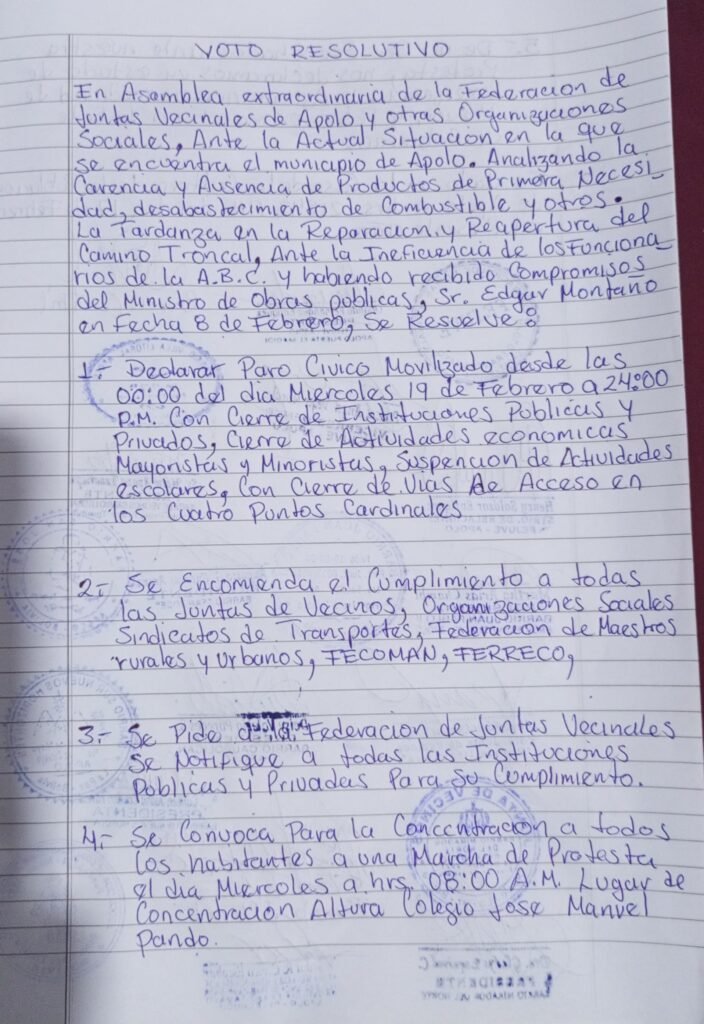 VOTO RESOLUTIVO
En Asamblea extraordinaria de la Federacion de
Juntas Vecinales de Apolo y otras Organizaciones
Sociales, Ante la Actual Situacion en la que
se encuentra el municipio de Apolo. Analizando la
Carencia y Ausencia de Productos de Primera Necesi_
dad, desabastecimiento de Combustible y otros.
La Tardanza en la Reparacion y Reapertura del
Camino Troncal, Ante la Ineficiencia de los Funciona_
rios de la A.B.C. y habiendo recibido Compromisos
del Ministro de Obras publicas, Sr. Edgar Montaño
en Fecha 8 de Febrero, Se Resuelve:
1.- Declarar Paro Civico Movilizado desde las
00:00 del dia Miercoles 19 de Febrero a 24:00
P.M. Con Cierre de Instituciones Publicas y
Privados, Cierre de Actividades economicas
Mayoristas y Minoristas, Suspencion de Actividades
escolares, Con Cierre de Vias de Acceso en
los Cuatro Puntos Cardinales
2.- Se Encomienda el Cumplimiento a todas
las Juntas de Vecinos, Organizaciones Sociales
Sindicatos de Transportes, Federacion de Maestros
rurales y Urbanos, FECOMAN, FERRECO,
3.- Se Pide a la Federacion de Juntas Vecinales
Se Notifique a todas las Instituciones
Publicas y Privadas Para su Cumplimiento.
4.- Se Convoca Para la Concentracion a todos
los habitantes a una Marcha de Protesta
el dia Miercoles a hrs. 08:00 A.M. Lugar de
Concentracion Altura Colegio Jose Manuel
Pando.